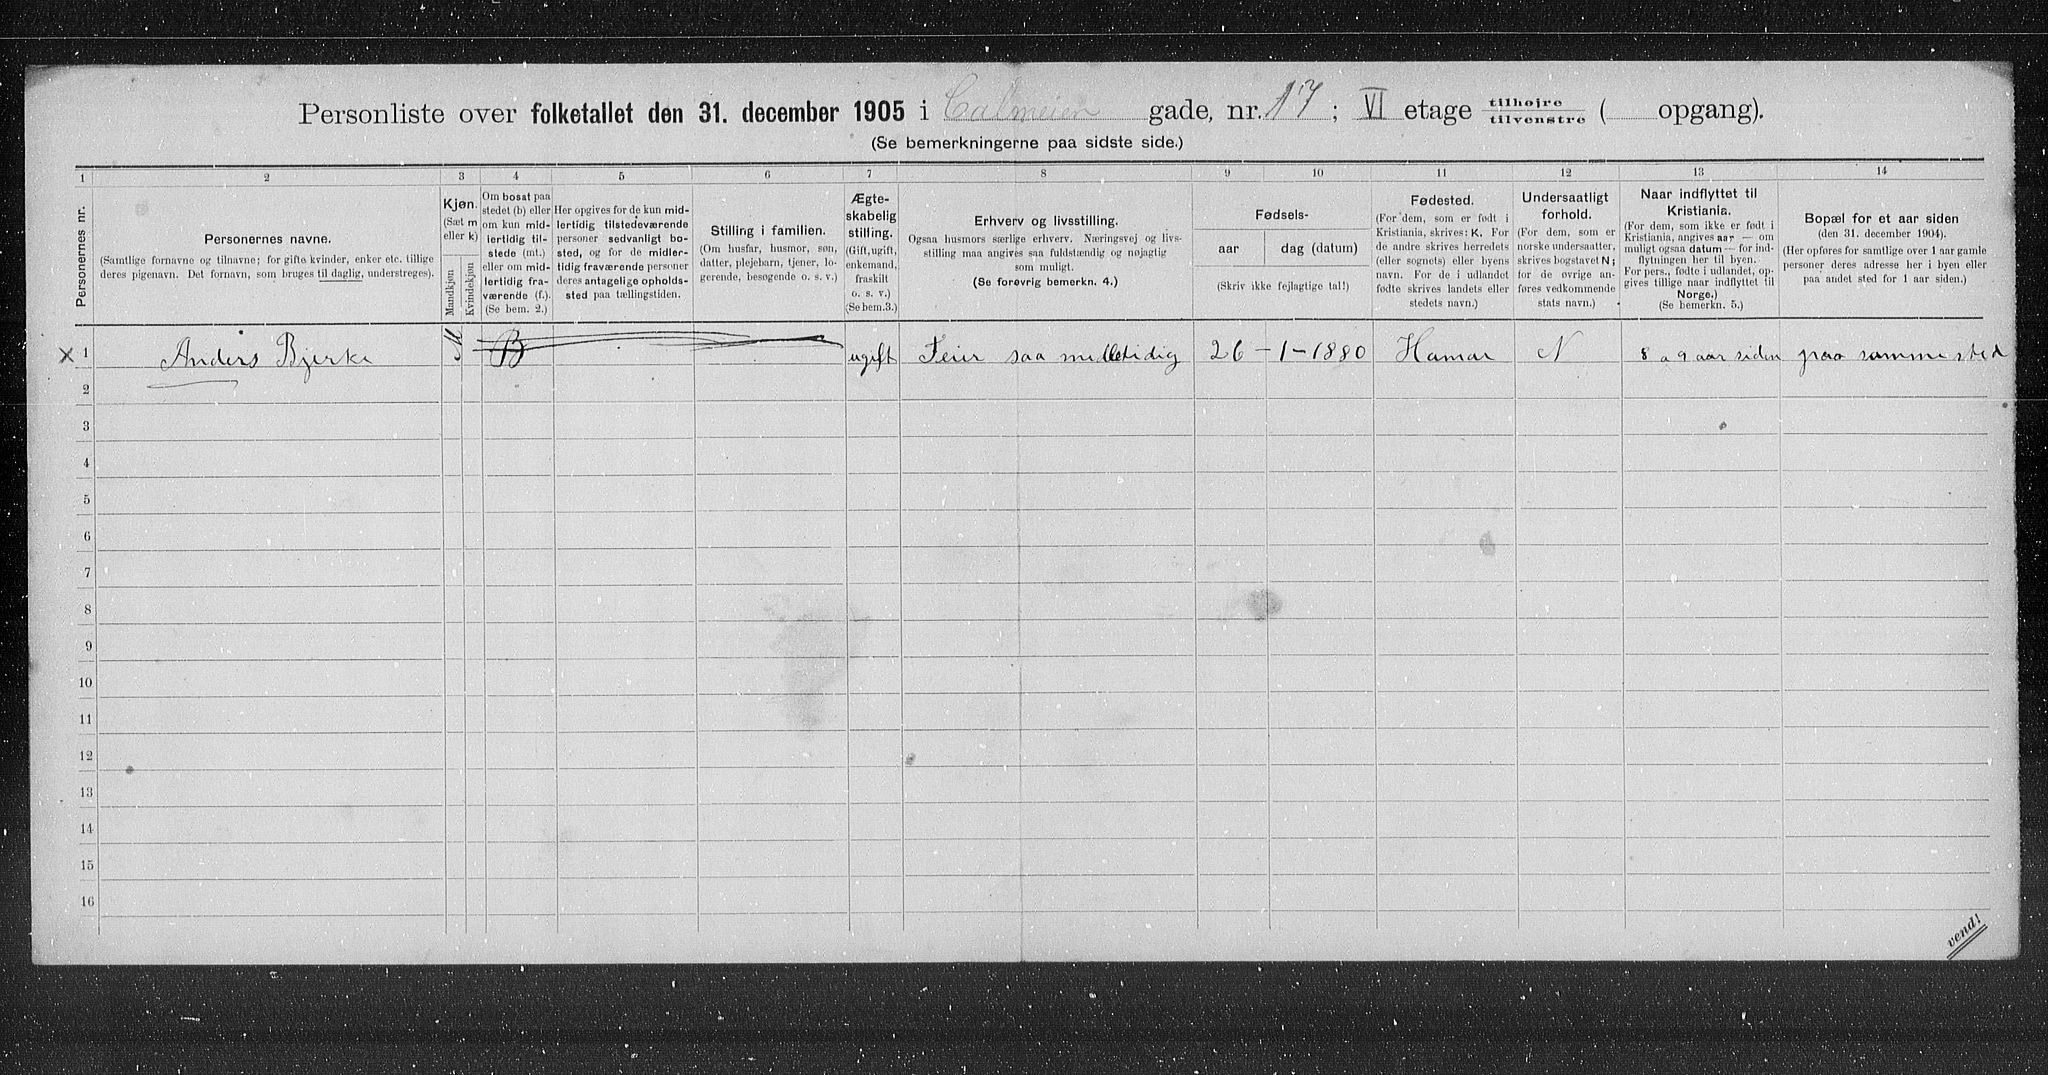 Personliste over folketallet den 31. december 1905 i Calmeien gade, nr. 17; VI etage tilhøjre tilvenstre ( opgang).
(Se bemerkningerne paa sidste side.)
1 2 3 4 5 6 7 8 9 10 11 12 13 14
Personernes nr.
Personernes navne.
(Samtlige fornavne og tilnavne; for gifte kvinder, enker etc. tillige
deres pigenavn. Det fornavn, som bruges til daglig, understreges).
Kjøn.
(Sæt m
eller k)
Mandkjøn
Kvindekjøn
Om bosat paa
stedet (b) eller
om kun mid-
lertidig til-
stede (mt.)
eller om mid-
lertidig fra-
værende (f.).
(Se bem. 2.)
Her opgives for de kun mid-
lertidig tilstedeværende
personer sedvanligt bo-
sted, og for de midler-
tidig fraværende personer
deres antagelige opholds-
sted paa tællingstiden.
Stilling i familien.
(Om husfar, husmor, søn,
datter, plejebarn, tjener, lo-
gerende, besøgende o. s. v.)
Ægte-
skabelig
stilling.
(Gift, ugift,
enkemand,
fraskilt
o. s. v.)
(Se bem. 3.)
Erhverv og livsstilling.
Ogsaa husmors særlige erhverv. Næringsvej og livs-
stilling maa angives saa fuldstændig og nøjagtig
som muligt.
(Se forøvrig bemerkn. 4.)
Fødsels-
aar
dag (datum)
(Skriv ikke fejlagtige tal!)
Fødested.
(For dem, som er født i
Kristiania, skrives: K. For
de andre skrives herredets
(eller sognets) eller byens
navn. For de i udlandet
fødte skrives landets eller
stedets navn.)
Undersaatligt
forhold.
(For dem, som er
norske undersaatter,
skrives bogstavet N;
for de øvrige an-
føres vedkommende
stats navn.)
Naar indflyttet til
Kristiania.
(For dem, som ikke er født i
Kristiania, angives aar — om
muligt ogsaa datum — for ind-
flytningen her til byen.
For pers., fødte i udlandet, op-
gives tillige naar indflyttet til
Norge.)
(Se bemerkn. 5.)
Bopæl for et aar siden
(den 31. december 1904).
(Her opføres for samtlige over 1 aar gamle
personer deres adresse her i byen eller
paa andet sted for 1 aar siden.)
x 1 Anders Bjerke M B ugift Feier saa midletidig 26 - 1 - 1880 Hamar N 8 a 9 aar siden paa samme sted
2
3
4
5
6
7
8
9
10
11
12
13
14
15
16
vend!